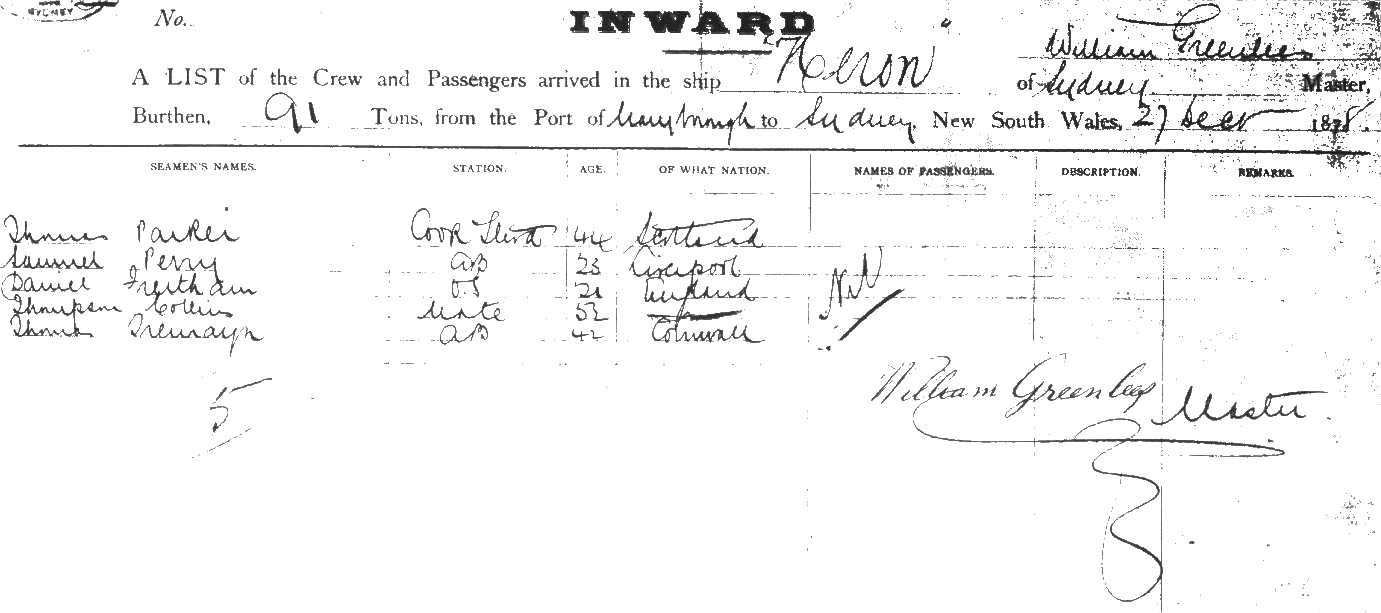 SYDNEY
No.
INWARD
A LIST of the Crew and Passengers arrived in the ship "Heron" William Greenlees of Sydney Master,
Burthen, 91 Tons, from the Port of Maryborough to Sydney, New South Wales, 27 Decr 1878.
SEAMEN'S NAMES. STATION. AGE. OF WHAT NATION. NAMES OF PASSENGERS. DESCRIPTION. REMARKS.
Thomas Parker Cook Stewd 44 Scotland
Samuel Perry AB 23 Liverpool
Daniel OS 21 England
Thompson Collins Mate 52
Thomas Tremayn AB 42 Cornwall
Nil
5
William Greenlees Master.